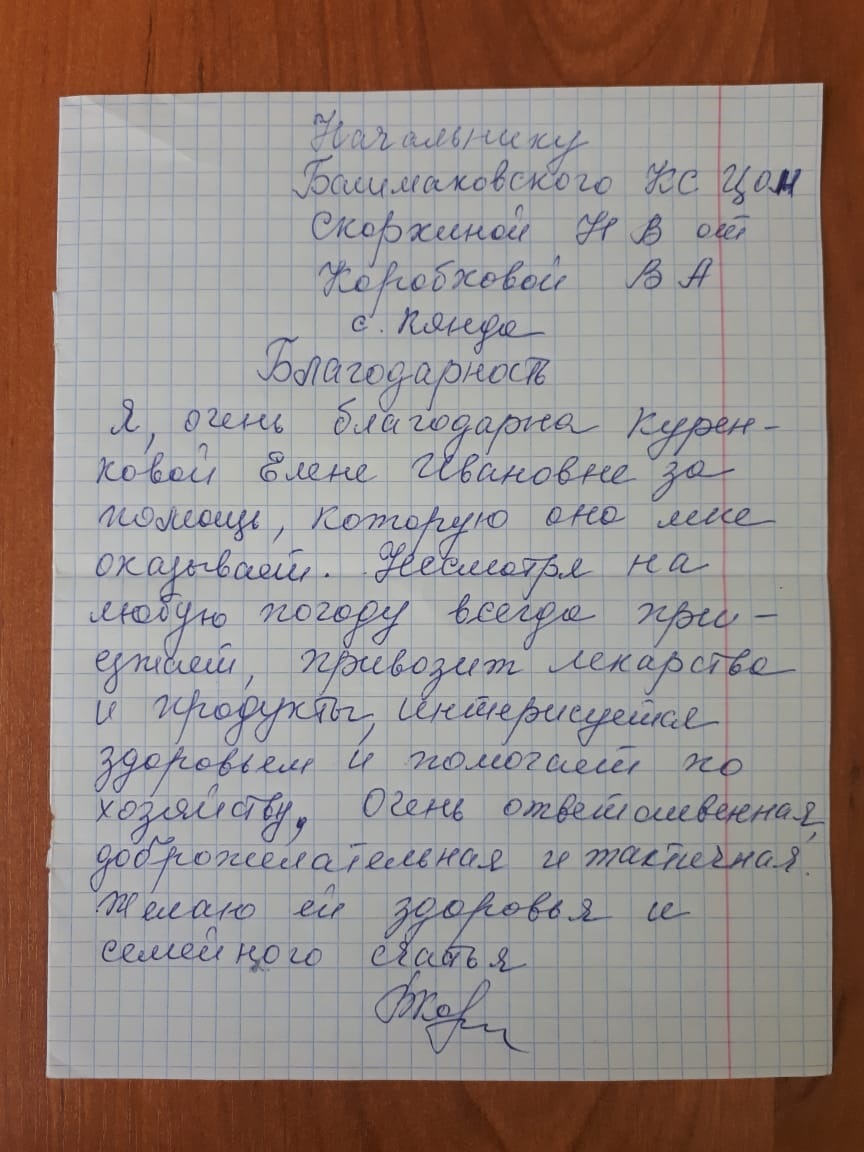 Начальнику
Башмаковского КСЦОН
Скоркиной Н В от
Коробковой В А
с. Кянда
Благодарность
Я, очень благодарна Курен-
ковой Елене Ивановне за
помощь, которую она мне
оказывает. Несмотря на
любую погоду всегда при-
езжает, привозит лекарства
и продукты, интерисуется
здоровьем и помогает по
хозяйству. Очень ответственная,
доброжелательная и тактичная.
Желаю ей здоровья и
семейного счастья